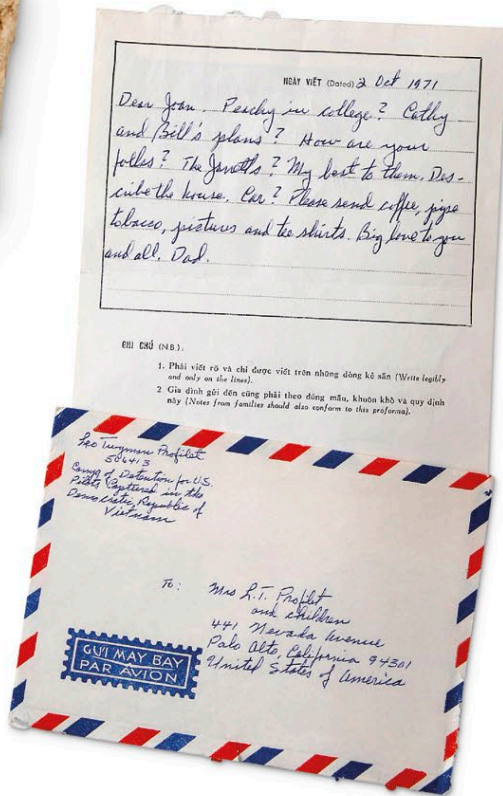 NGÀY VIẾT (Dated) 2 Oct 1971
Dear Joan. Peachy in college? Cathy
and Bill's plans? How are your
folks? The Janotta's? My best to them. Des-
cribe the house. Car? Please send coffee, pipe
tobacco, pictures and tee shirts. Big love to you
and all. Dad.
GHI CHÚ (N.B.):
1. Phải viết rõ và chỉ được viết trên những dòng kẻ sẵn (Write legibly
and only on the lines).
2 Gia đình gửi đến cũng phải theo đúng mẫu, khuôn khổ và quy định
này (Notes from families should also conform to this proforma).
Leo Twyman Profilet
506413
Camp of Detention for U.S.
Pilots Captured in the
Democratic Republic of
Vietnam
To: Mrs L.T. Profilet
and children
441 Nevada Avenue
Palo Alto, California 94301
United States of America
GỬI MÁY BAY
PAR AVION